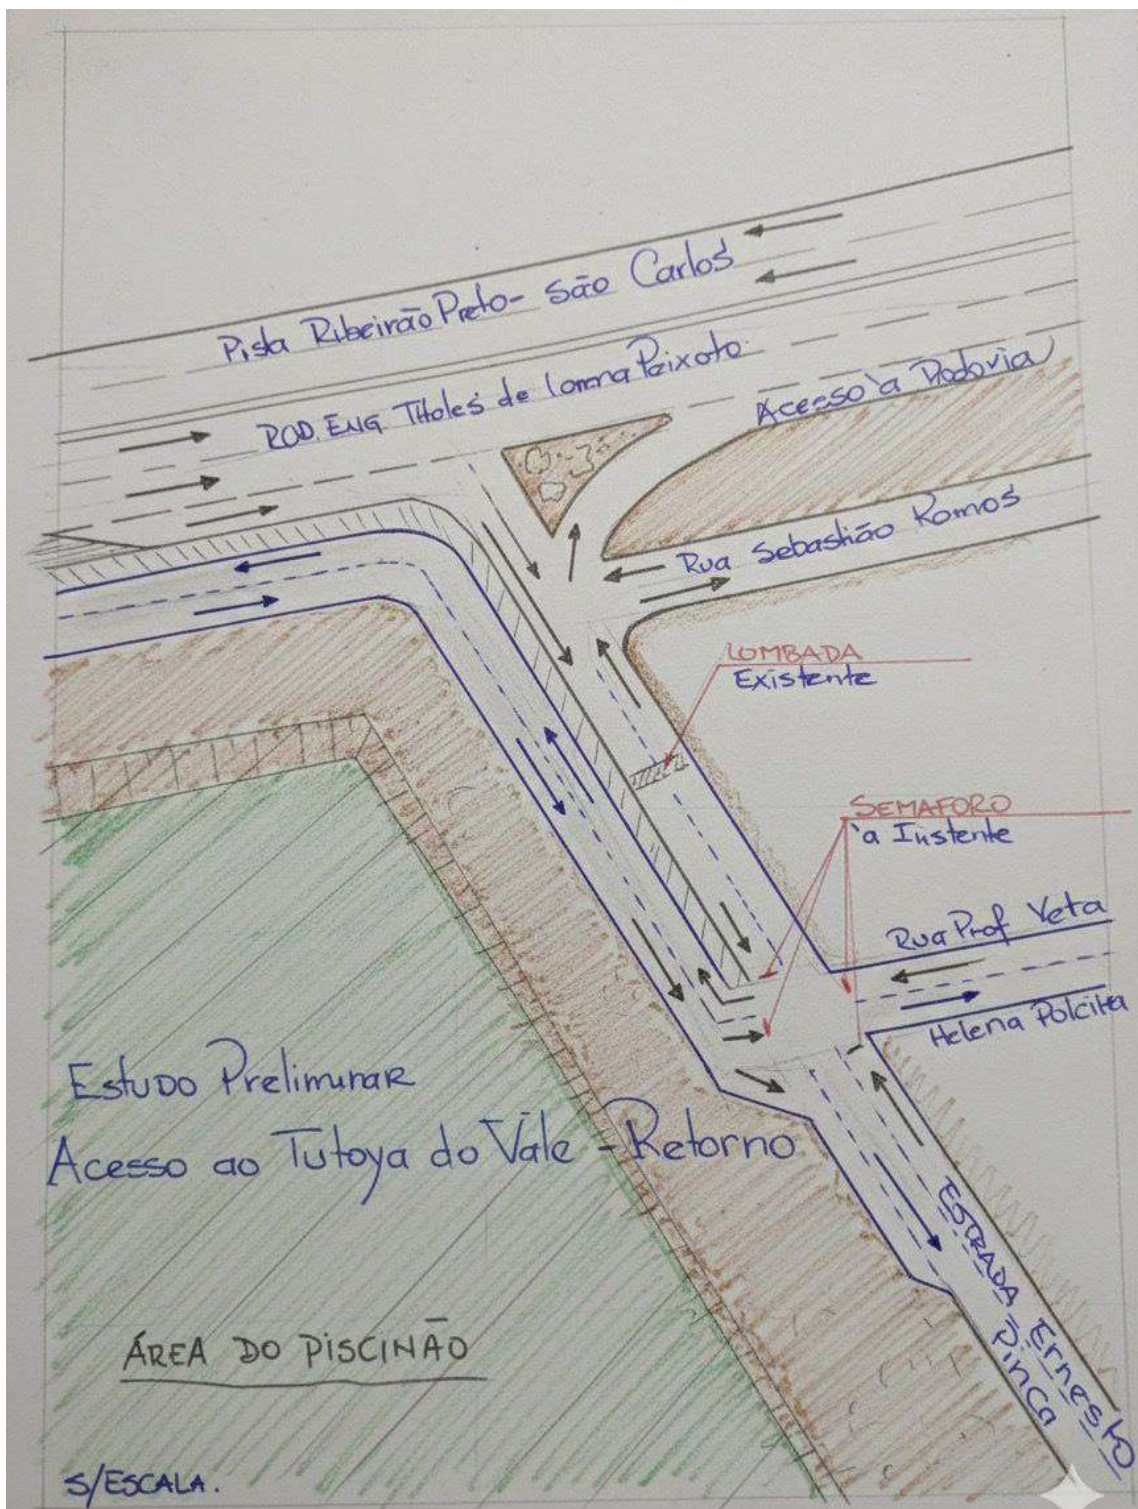 Pista Ribeirão Preto - São Carlos
ROD. ENG THales de Lorena Peixoto
Acesso à Rodovia
Rua Sebastião Ramos
LOMBADA
Existente
SEMAFORO
à Instente
Rua Prof Yeta
Helena Polcita
Estudo Preliminar
Acesso ao Tutoya do Vale - Retorno
ESTRADA Ernesto
Pinca
ÁREA DO PISCINÃO
S/ESCALA.